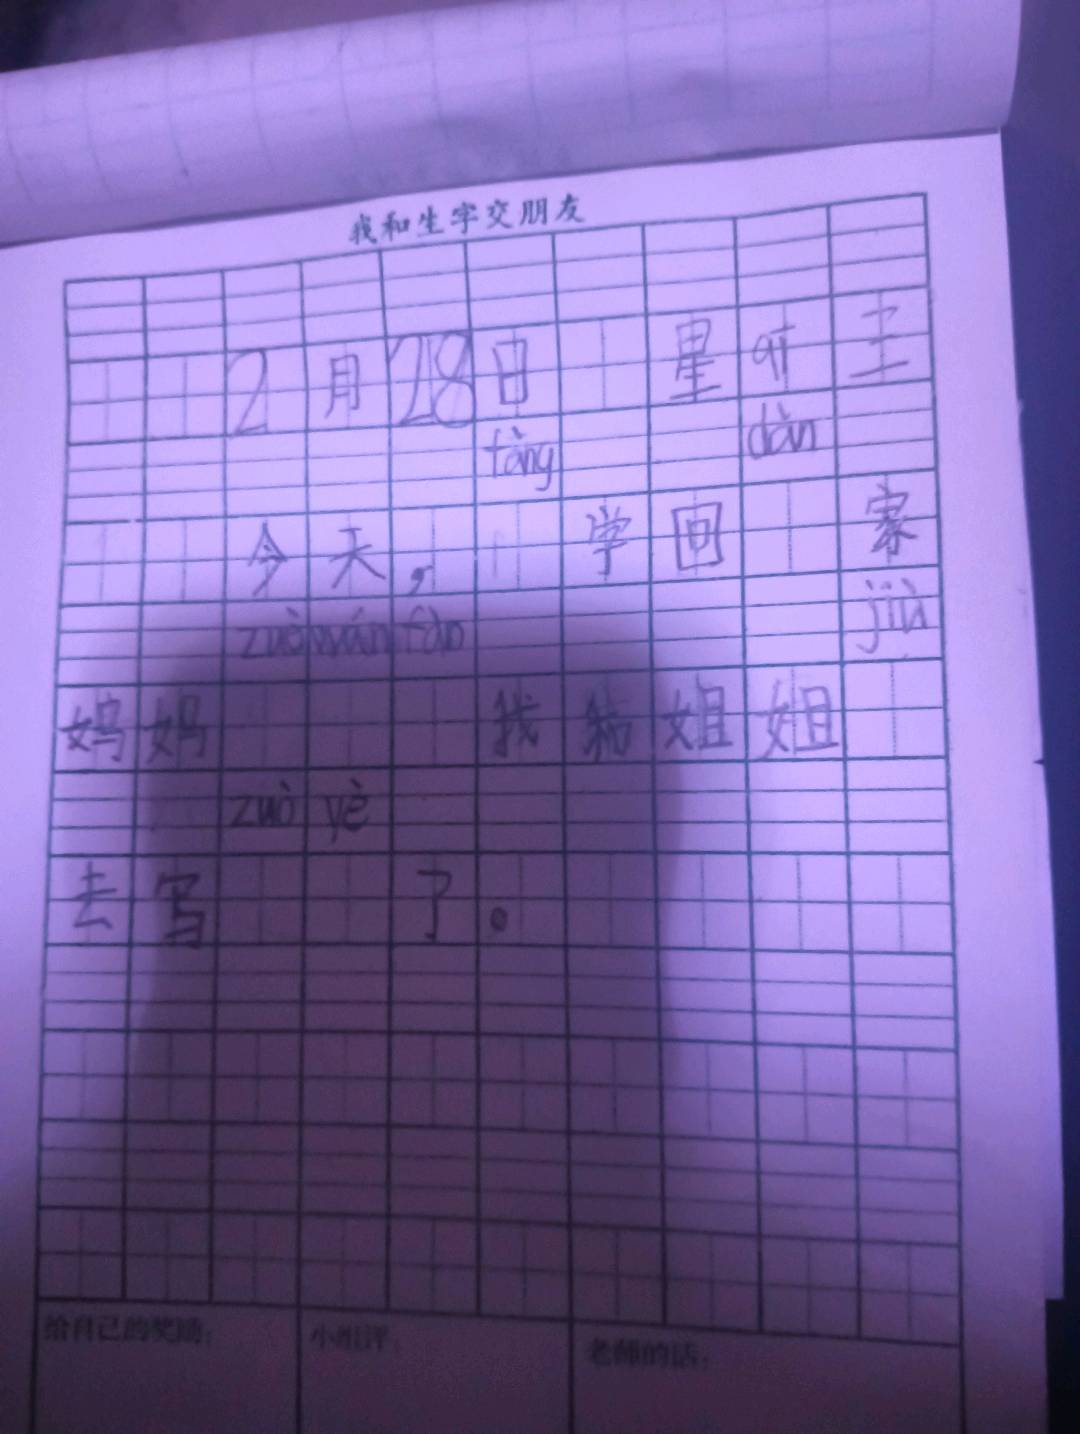 我和生字交朋友
2月28日 星qī三
fàng dàn
今天, 学回 家
zuò wán fàn jiù
妈妈 我和姐姐
zuò yè
去写 了。
给自己的奖励:
小组评:
老师的话: